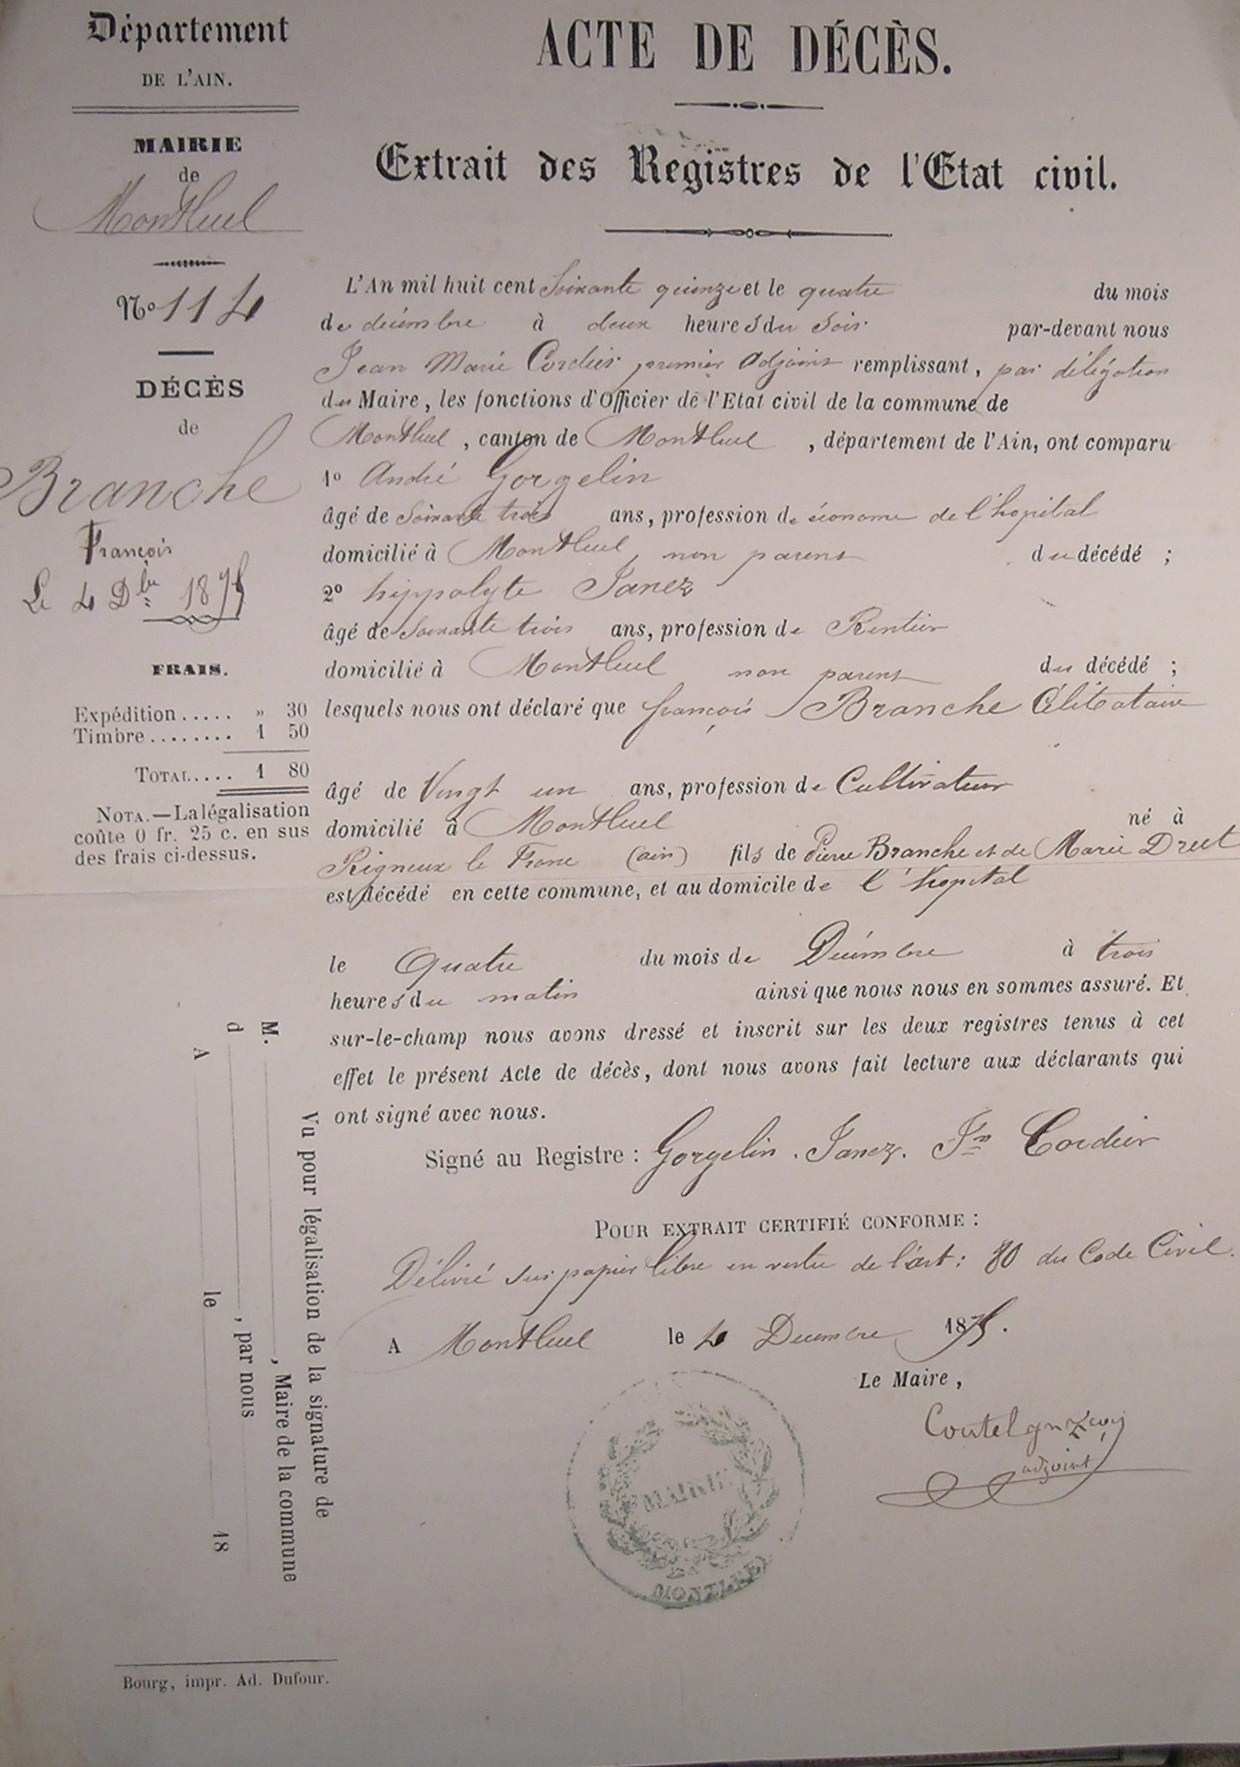 Département
DE L'AIN.
MAIRIE
de
Montluel
No 114
DÉCÈS
de
Branche
François
Le 4 Dbre 1875
FRAIS.
Expédition..... » 30
Timbre........ 1 50
TOTAL.... 1 80
NOTA.—La légalisation
coûte 0 fr. 25 c. en sus
des frais ci-dessus.
ACTE DE DÉCÈS.
Extrait des Registres de l'Etat civil.
L'An mil huit cent Soixante quinze et le quatre du mois
de décembre à deux heures du soir par-devant nous
Jean Marie Cordier premier adjoint remplissant, par délégation
du Maire, les fonctions d'Officier de l'Etat civil de la commune de
Montluel, canton de Montluel, département de l'Ain, ont comparu
1o André Gorgelin
âgé de Soixante trois ans, profession de économe de l'hopital
domicilié à Montluel, non parent du décédé ;
2o hippolyte Janez
âgé de Soixante trois ans, profession de Rentier
domicilié à Montluel non parent du décédé ;
lesquels nous ont déclaré que françois Branche Célibataire
âgé de Vingt un ans, profession de Cultivateur
domicilié à Montluel né à
Rigneux le Franc (ain) fils de Pierre Branche et de Marie Druet
est décédé en cette commune, et au domicile de l'hopital
le Quatre du mois de Décembre à trois
heures du matin ainsi que nous nous en sommes assuré. Et
sur-le-champ nous avons dressé et inscrit sur les deux registres tenus à cet
effet le présent Acte de décès, dont nous avons fait lecture aux déclarants qui
ont signé avec nous.
Signé au Registre : Gorgelin. Janez. Jn Cordier
POUR EXTRAIT CERTIFIÉ CONFORME :
Délivré sur papier libre en vertu de l'art: 80 du Code Civil.
A Montluel le 4 Decembre 1875.
Le Maire,
adjoint
MAIRIE
MONTLUEL
Vu pour légalisation de la signature de
M. , Maire de la commune
d , par nous
A le 18
Bourg, impr. Ad. Dufour.